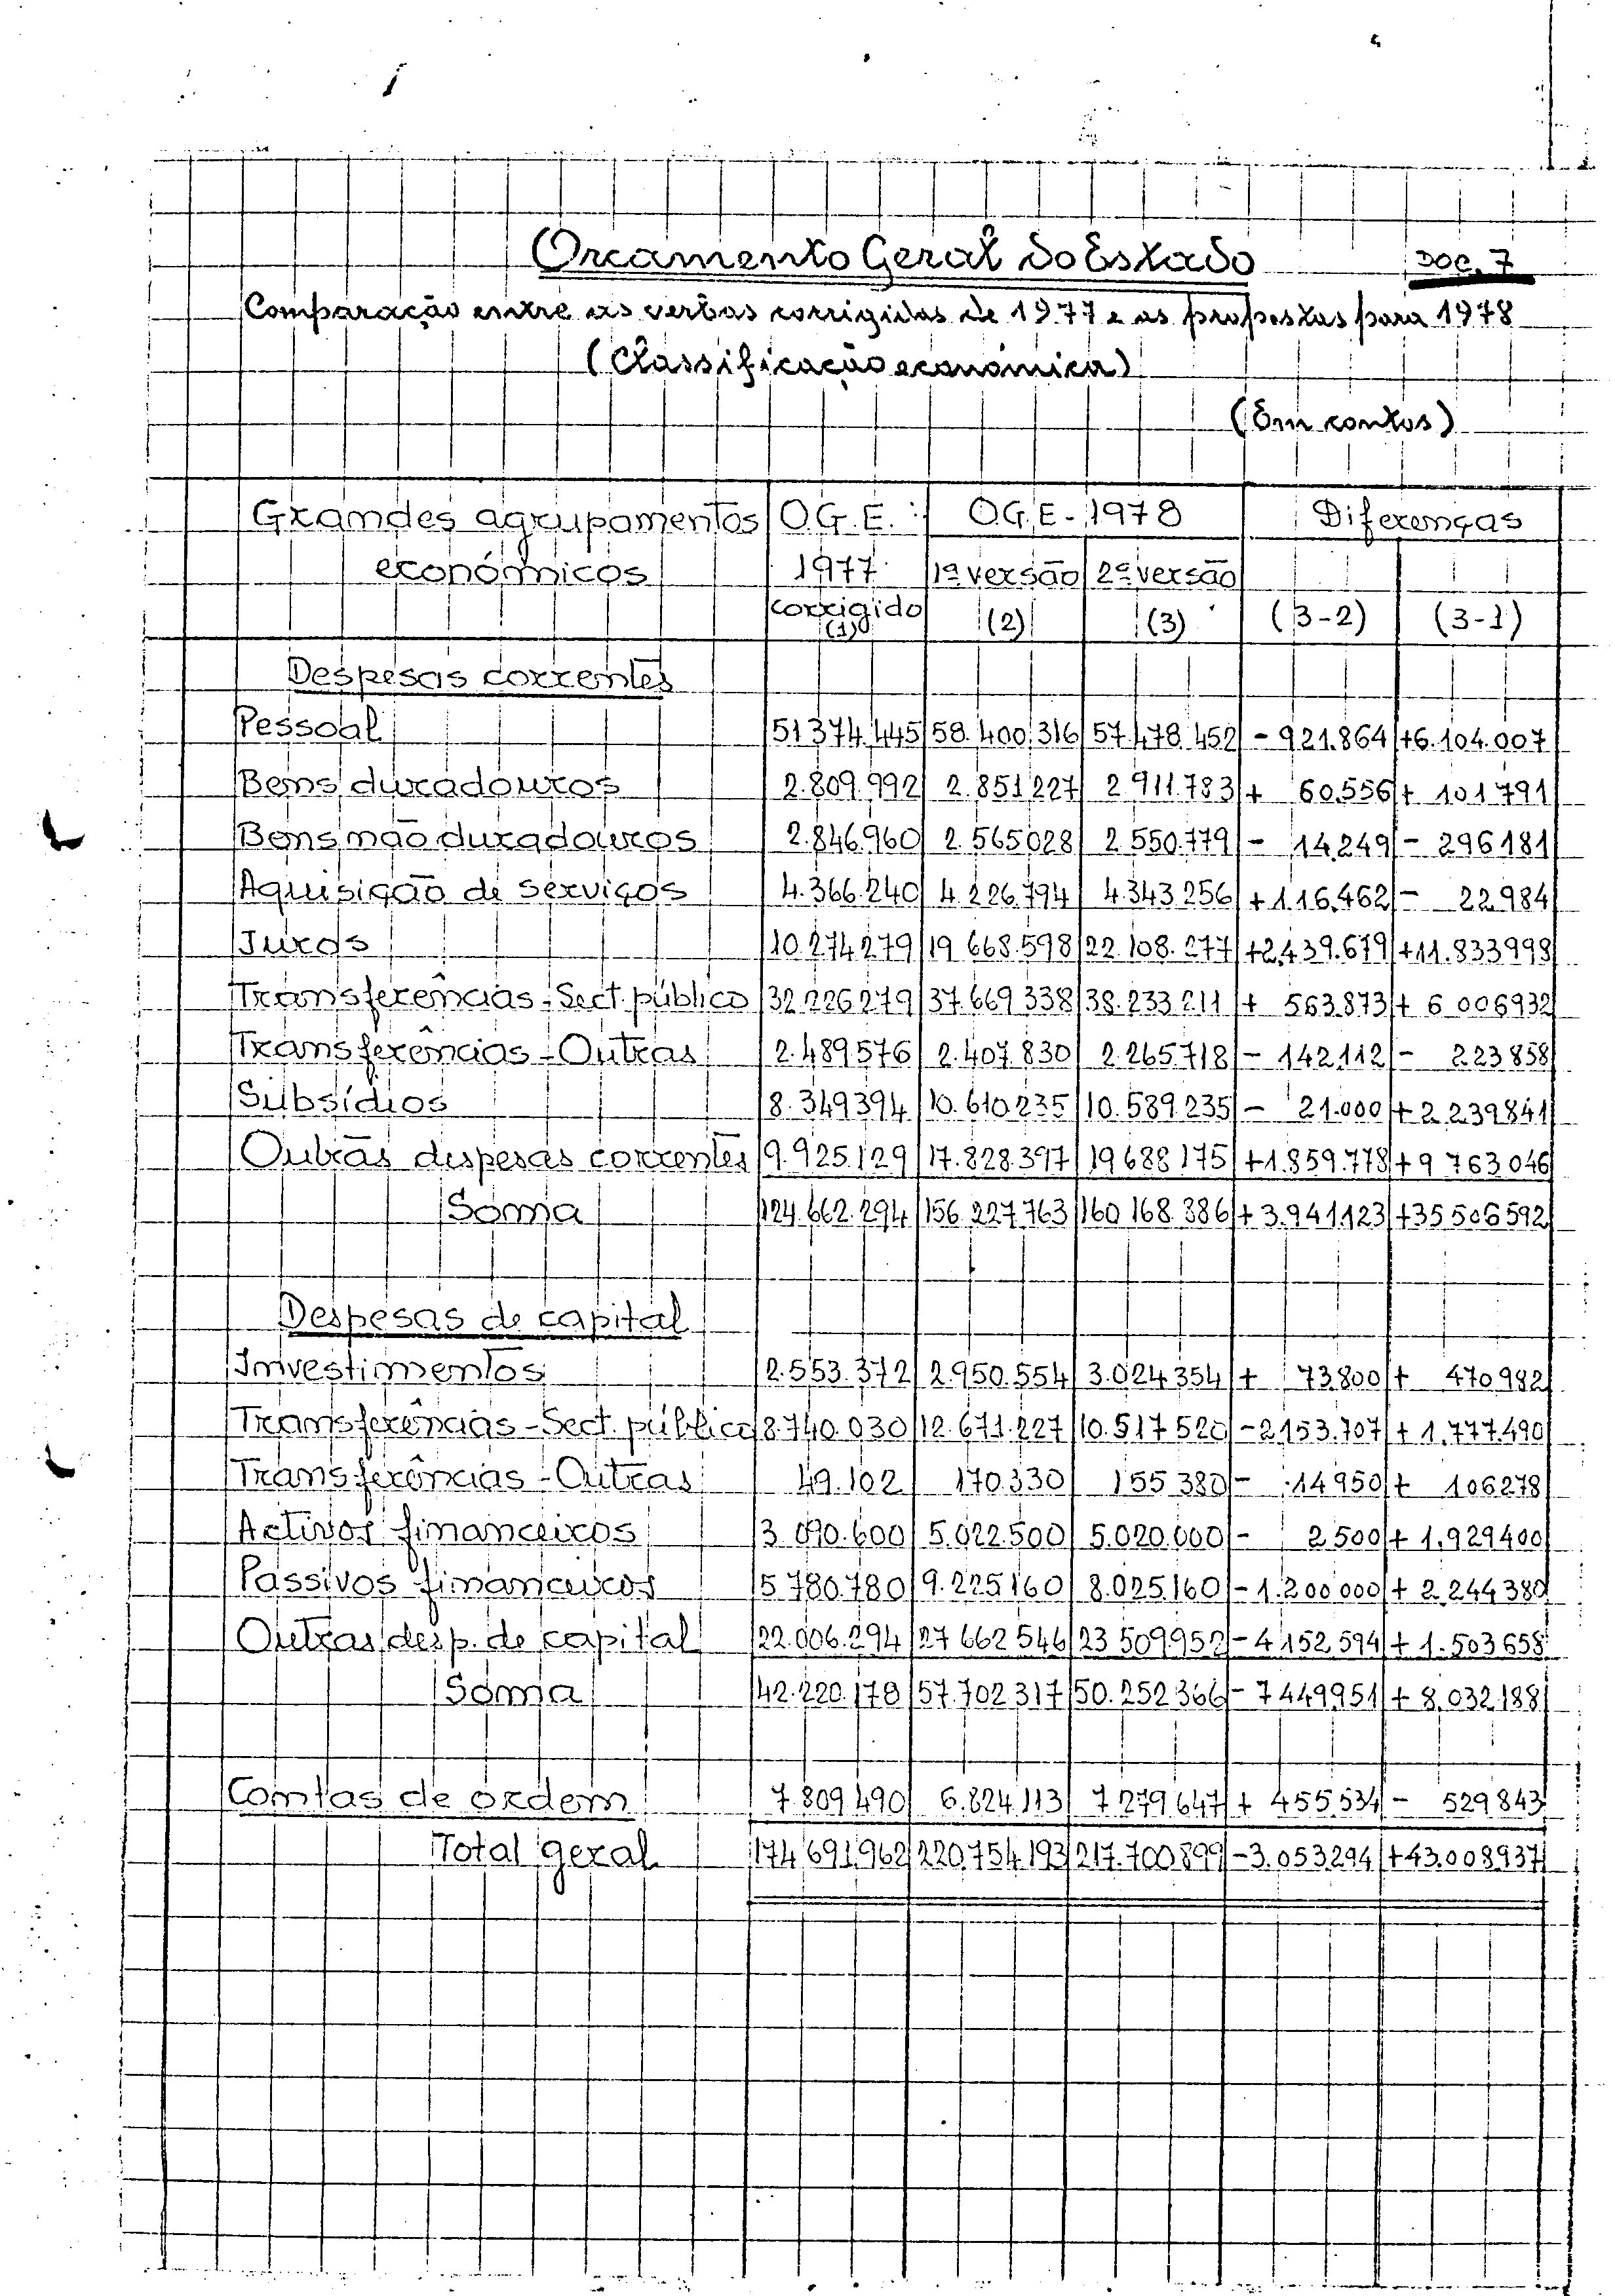 Orçamento Geral do Estado
DOC. 7
Comparação entre as verbas corrigidas de 1977 e as propostas para 1978
(Classificação económica)
(Em contos)
Grandes agrupamentos O.G.E. O.G.E - 1978 Diferenças
económicos 1977 1ª versão 2ª versão
corrigido (1) (2) (3) (3-2) (3-1)
Despesas correntes
Pessoal 51 374.445 58.400.316 57.478.452 - 921.864 +6.104.007
Bens duradouros 2.809.992 2.851 227 2 911.783 + 60.556 + 101 791
Bens não duradouros 2.846.960 2.565028 2 550.779 - 14.249 - 296 181
Aquisição de serviços 4.366.240 4.226.794 4.343.256 +116.462 - 22.984
Juros 10.274279 19 668.598 22.108.277 +2.439.679 +11.833998
Transferências - Sect. público 32.226279 37.669338 38.233.211 + 563.873 + 6 006932
Transferências - Outras 2.489576 2.407.830 2.265.718 - 142.112 - 223 858
Subsídios 8.349394 10.610.235 10.589.235 - 21.000 +2.239841
Outras despesas correntes 9.925.129 17.828.397 19688 175 +1.859.778 +9 763046
Soma 124.662.294 156.227.763 160 168.386 +3.941.123 +35506592
Despesas de capital
Investimentos 2.553.372 2.950.554 3.024.354 + 73.800 + 470982
Transferências - Sect. público 8.740.030 12.671.227 10.517 520 -2.153.707 + 1.777.490
Transferências - Outras 49.102 170.330 155 380 - 14950 + 106278
Activos financeiros 3 090.600 5.022.500 5.020.000 - 2.500 + 1.929400
Passivos financeiros 5.780.780 9.225160 8.025.160 - 1.200000 + 2.244380
Outras desp. de capital 22.006.294 27 662 546 23 509952 - 4152.594 + 1.503658
Soma 42.220.178 57.702317 50.252366 - 7449951 + 8.032.188
Contas de ordem 7.809.490 6.824.113 7.279647 + 455.534 - 529843
Total geral 174 691.962 220.754.193 217.700899 -3.053294 +43.008937